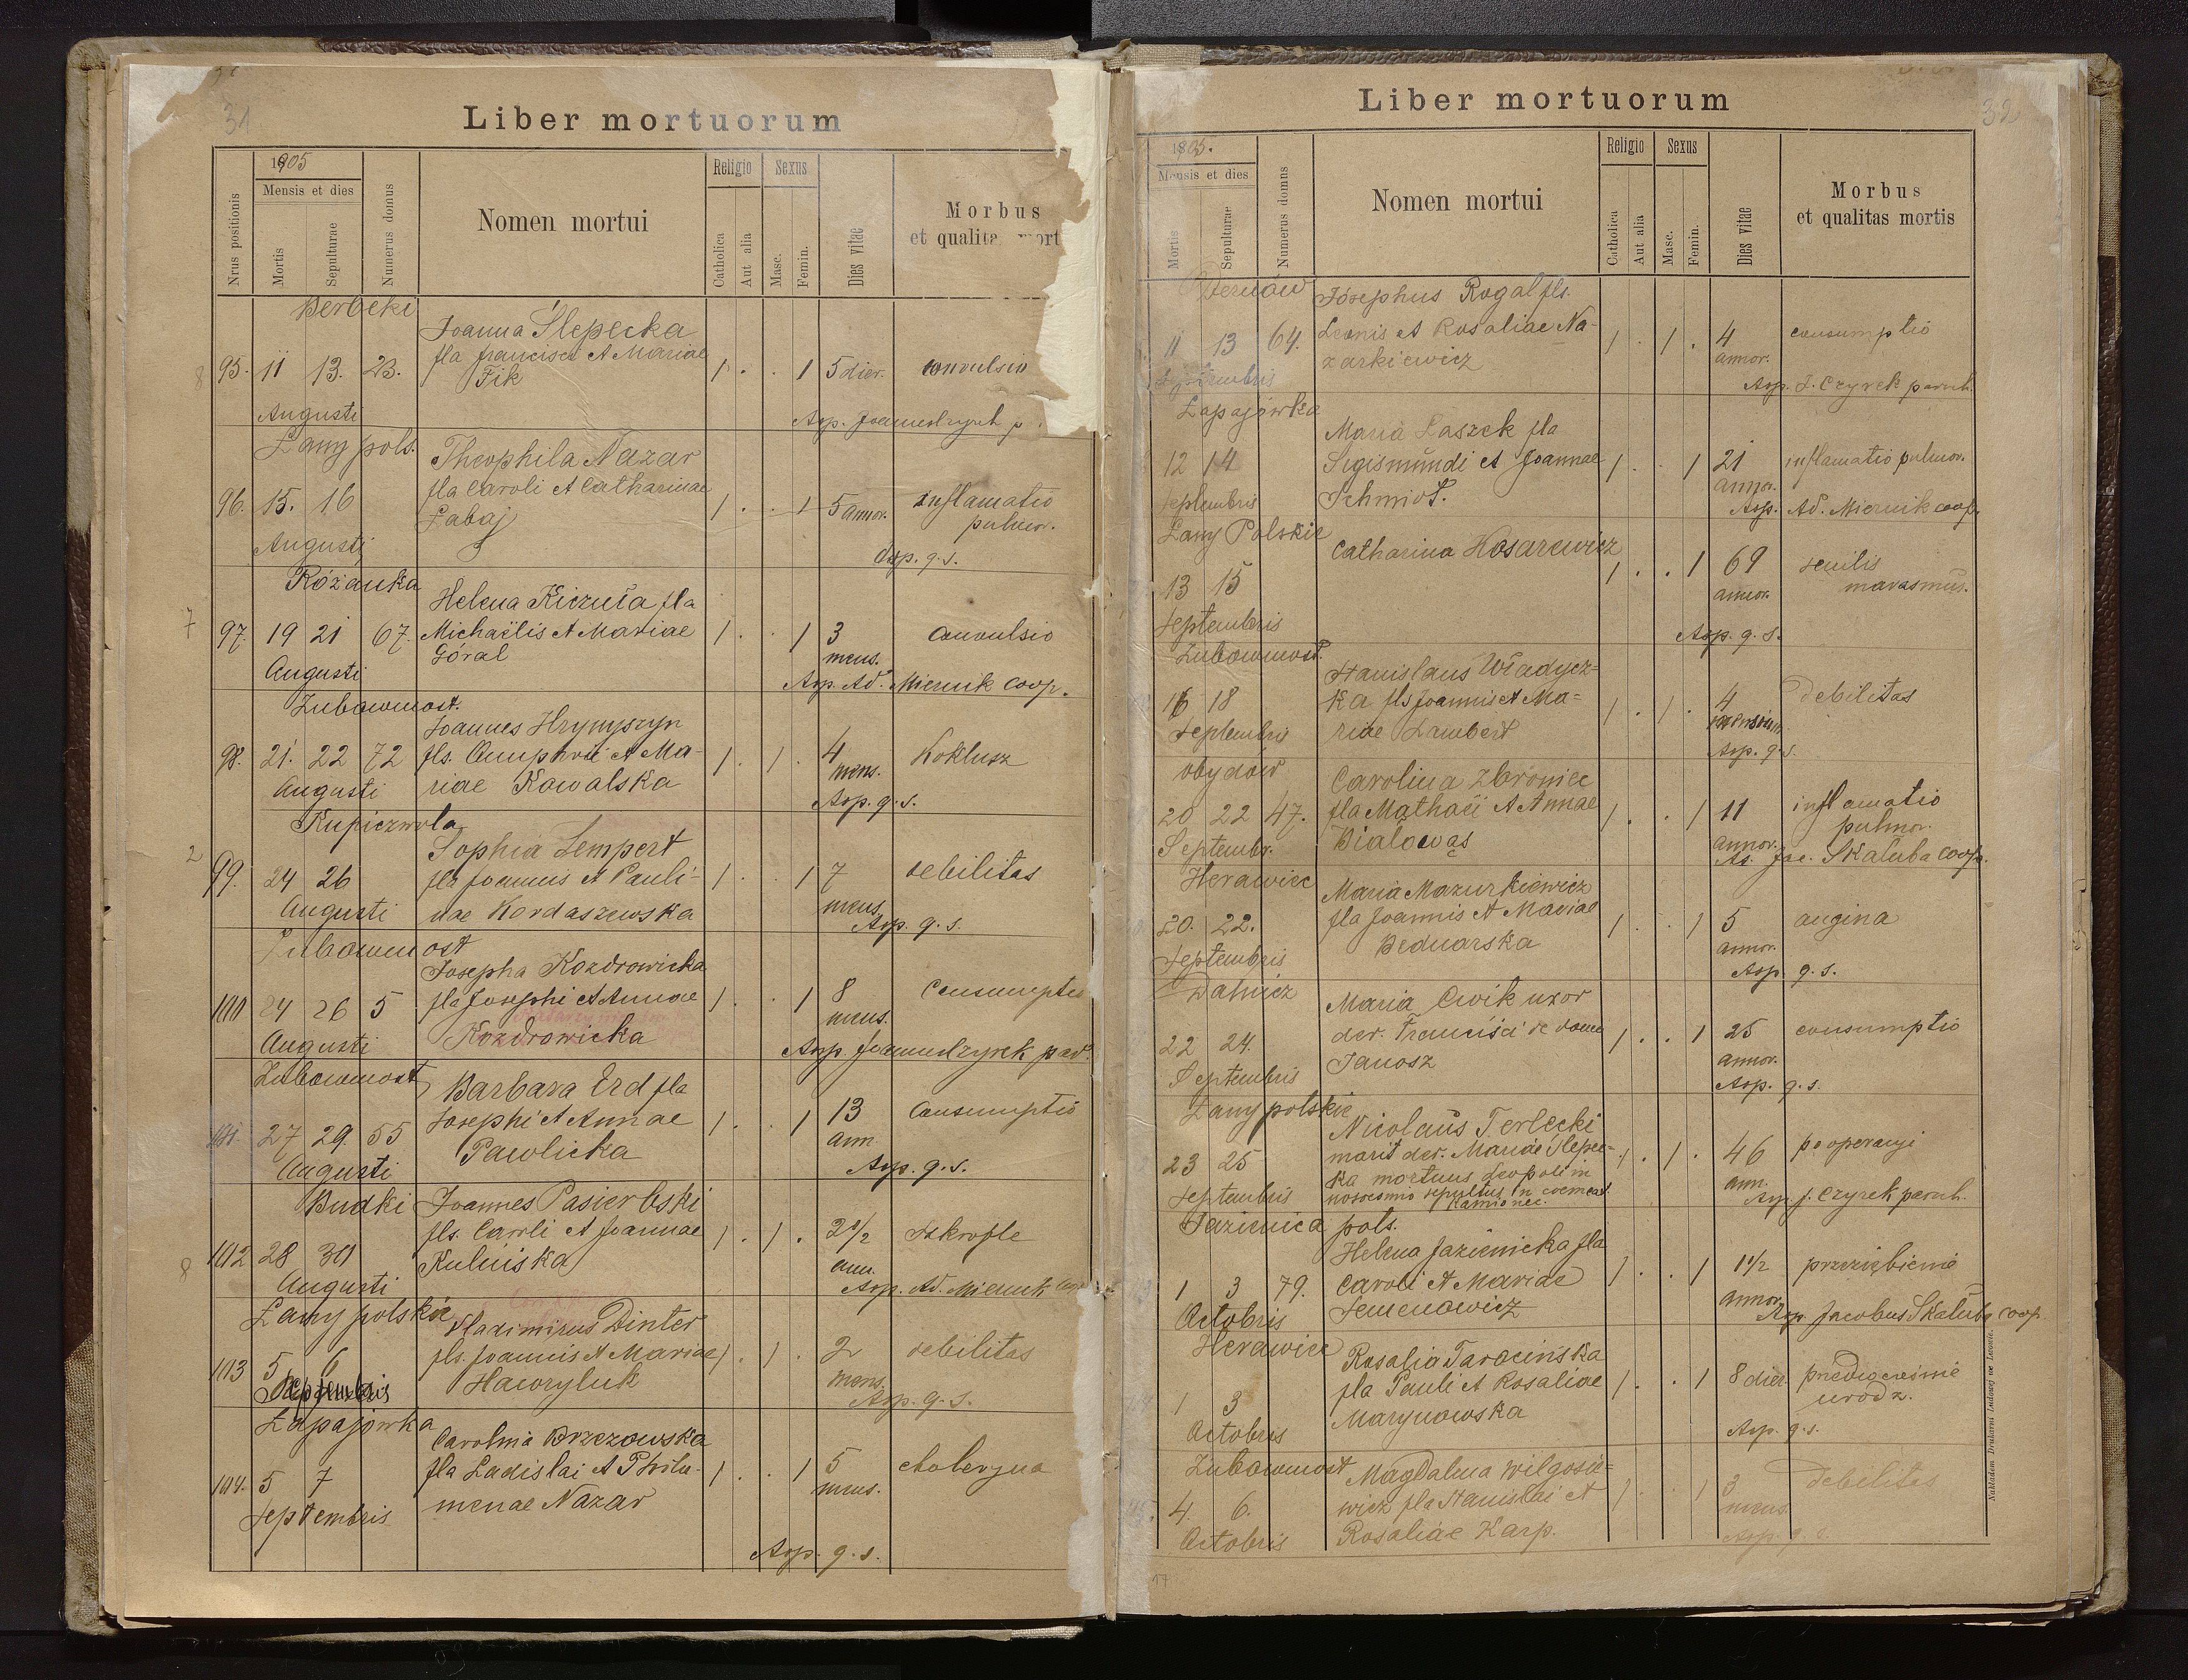 31
Liber mortuorum
1905
Nrus positionis
Mensis et dies
Mortis
Sepulturae
Numerus domus
Nomen mortui
Religio
Catholica
Aut alia
Sexus
Masc.
Femin.
Dies vitae
Morbus
et qualita mort
Berbeki
Joanna Ślepecka
fla Francisci et Mariae
Fik
95. 11 13. 23. 1 . . 1 5 dier. convulsio
Augusti
Asp. Joannes Czyrek p
Łany pols.
Theophila Nazar
fla Caroli et Catharinae
Łabaj
96. 15. 16 1 . . 1 5 annor. inflamatio
pulmor.
Augusti
Asp. q. s.
Różanka
Helena Kiczuła fla
97. 19 21 67. Michaëlis et Mariae 1 . . 1 3 convulsio
Góral
mens.
Augusti
Asp. Ad. Miernik coop.
Żubowmost.
Joannes Hrynyszyn
98. 21. 22 72 fls. Onuphrii et Ma- 1 . 1 . 4 Koklusz
mens.
Augusti riae Kowalska
Asp. q. s.
Kupiczwola
Sophia Lempert
99. 24 26 fla Joannis et Pauli- 1 . . 1 7 debilitas
Augusti nae Kordaszewska mens.
Asp. q. s.
Żubowmost
Josepha Kozdrowicka
100 24 26 5 fla Josephi et Annae 1 . . 1 8 Consumptio
mens.
Augusti Kozdrowicka
Asp. Joannes Czyrek par.
Żubowmost
Barbara Erd fla
101. 27 29 55 Josephi et Annae 1 . . 1 13 Consumptio
ann
Augusti Pawlicka
Asp. q. s.
Budki Joannes Pasierbski
fls. Caroli et Joannae
102 28 30 Kulińska 1 . 1 . 2 1/2 Skrofle
ann.
Augusti
Asp. Ad. Miernik coop
Łany polskie
Vladimirus Dinter
103 5 6 fls. Joannis et Mariae 1 . 1 . 2 debilitas
Septembris Haworyluk mens.
Asp. q. s.
Łapajówka
Carolina Brzezowska
104. 5 7 fla Ladislai et Philo- 1 . . 1 5 choleryna
mens.
Septembris menae Nazar
Asp. q. s.
32
Liber mortuorum
1905.
Mensis et dies
Mortis
Sepulturae
Numerus domns
Nomen mortui
Religio
Catholica
Aut alia
Sexus
Masc.
Femin.
Dies vitae
Morbus
et qualitas mortis
Dernów Jósephus Rogal fls.
11 13 64. Leonis et Rosaliae Na- 1 . 1 . 4 consumptio
zarkiewicz annor.
Septembris
Asp. J. Czyrek paroch.
Łapajówka
Maria Laszek fla
12 14 Sigismundi et Joannae 1 . . 1 21 inflamatio pulmor.
annor.
Septembris Schmidt.
Asp. Ad. Miernik coop.
Łany Polskie
Catharina Kosarewicz
13 15 1 . . 1 69 senilis
annor. marasmus.
Septembris
Asp. q. s.
Żubowmost.
Stanislaus Władycz-
16 18 ka fls Joannis et Ma- 1 . 1 . 4 debilitas
Septembris riae Lambert
Asp. q. s.
Obydów
Carolina Zbroniec
20 22 47. fla Mathaei et Annae 1 . . 1 11 inflamatio
pulmor.
Septembr. Białowąs annor.
As. Jac. Skałuba coop.
Herawiec
Maria Mazurkiewicz
20. 22. fla Joannis et Mariae 1 . . 1 5 angina
Bednarska annor.
Septembris
Asp. q. s.
Dalnicz
Maria Cwik uxor
22 24. der. Francisci de domo 1 . . 1 25 consumptio
Janosz annor.
Septembris
Asp. q. s.
Łany polskie
Nicolaus Terlecki
23 25 marit der. Mariae Slepec- 1 . 1 . 46 po operacyi
ka mortuus Leopoli in ann.
Septembris nosocomio sepultus in coemeat.
Kamionec.
Asp. J. Czyrek paroch.
Jazienica pols.
Helena Jazienicka fla
1 3 79. Caroli et Mariae 1 . . 1 1 1/2 przeziębienie
annor.
Octobris Semenowicz
Asp. Jacobus Skałuba coop.
Herawiec
Rosalia Tarocińska
1 3 fla Pauli et Rosaliae 1 . . 1 8 dier. przedwcześnie
urodz.
Octobris Marynowska
Asp. q. s.
Żubowmost Magdalena Wilgosie-
4. 6. wicz fla Stanislai et 1 . . 1 3 debilitas
mens.
Octobris Rosaliae Karp.
Asp. q. s.
17
Nakładem Drukarni Ludowej we Lwowie.